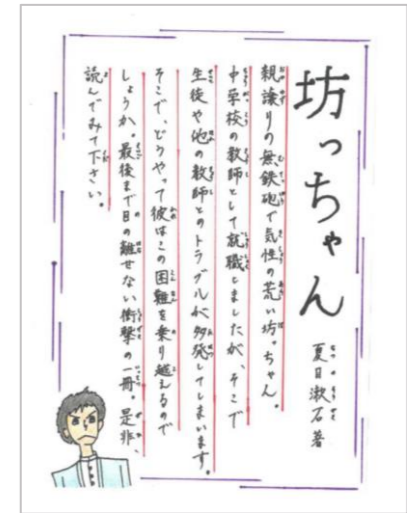 坊っちゃん
夏目漱石 著
親譲りの無鉄砲で気性の荒い坊っちゃん。
中学校の教師として就職しましたが、そこで
生徒や他の教師とのトラブルが多発してしまいます。
そこで、どうやって彼はこの困難を乗り越えるので
しょうか。最後まで目の離せない衝撃の一冊。是非、
読んでみて下さい。